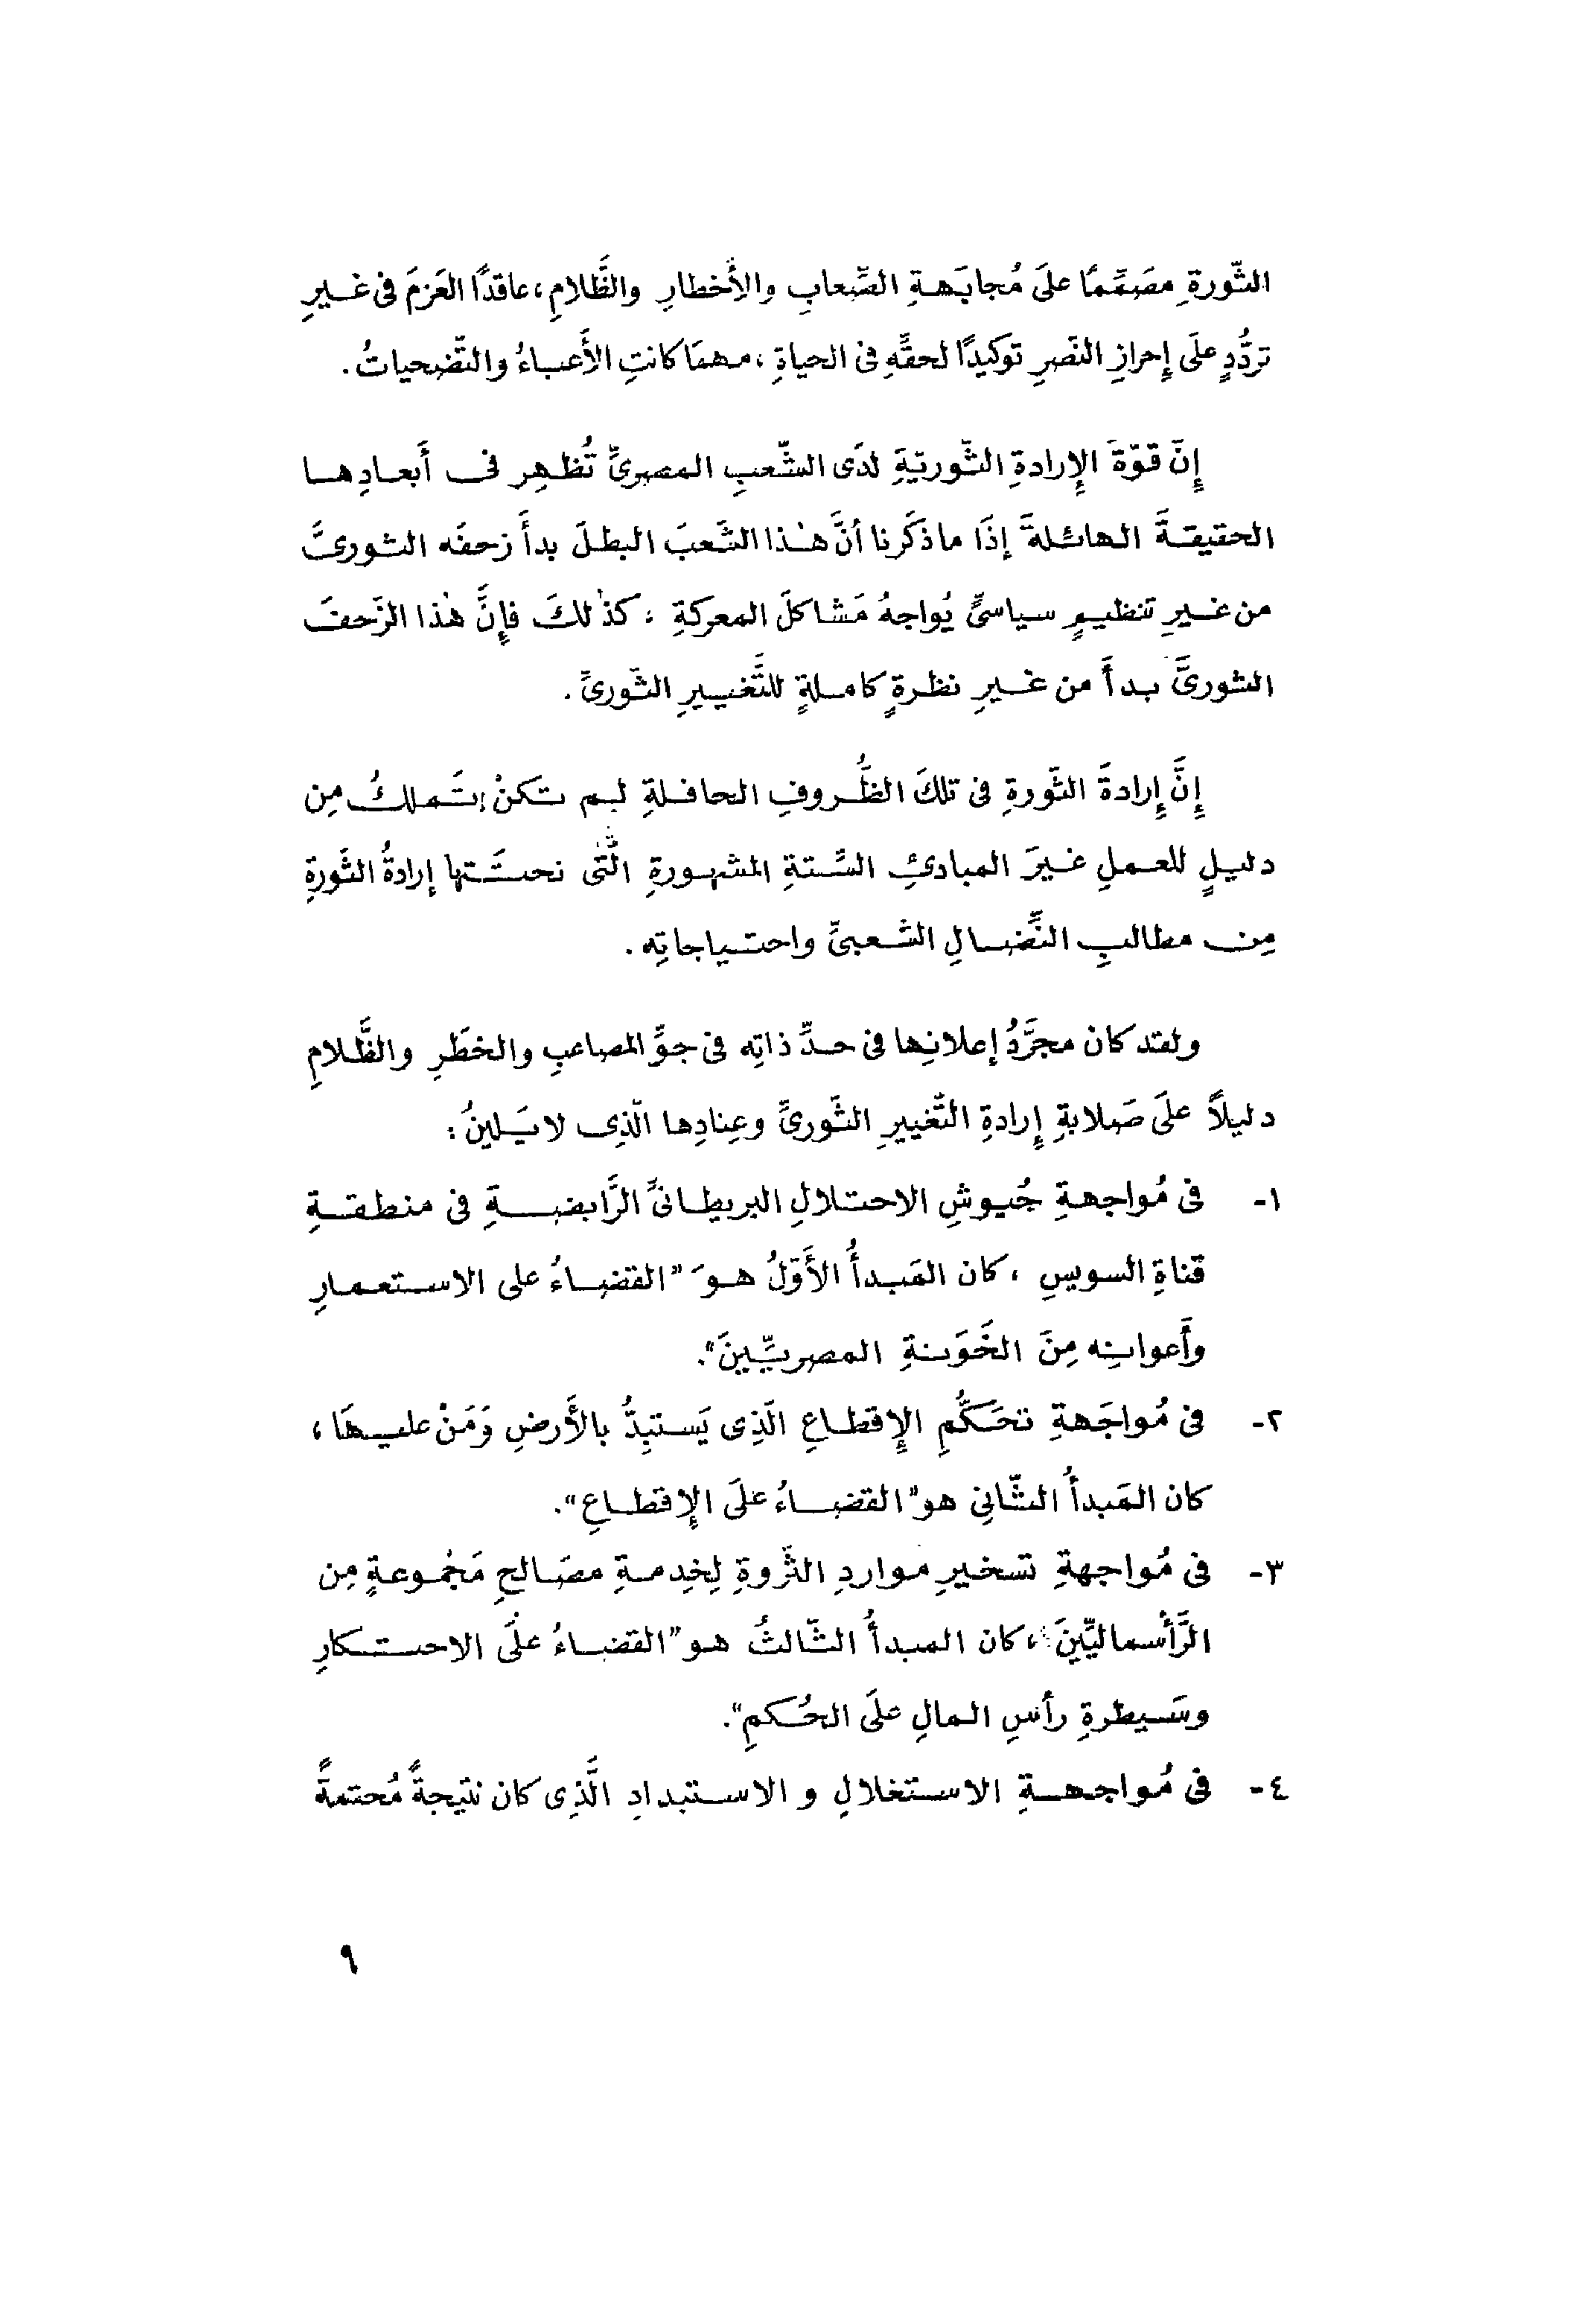 الثّورةِ مصَمِّمًا علَى مُجابَهةِ الصِّعابِ والأَخطارِ والظَّلامِ، عاقدًا العَزمَ فى غيرِ
تردُّدٍ علَى إِحرازِ النَصرِ توكيدًا لحقِّهِ فى الحياةِ ، مهمَا كانتِ الأَعباءُ والتّضحياتُ .
إِنّ قوّةَ الإِرادةِ الثّوريّةِ لدَى الشّعبِ المصرىِّ تُظهِر فى أَبعادِها
الحقيقةَ الهائلةَ إذَا ما ذكَرنا أنَّ هٰذا الشَّعبَ البطلَ بدأَ زحفَه الثورىَّ
من غيرِ تنظيمٍ سياسىٍّ يُواجهُ مَشاكلَ المعركةِ ، كذٰلكَ فإِنَّ هٰذا الزَحفَ
الثورىَّ بدأَ من غيرِ نظرةٍ كاملةٍ للتَّغييرِ الثّورىِّ .
إِنَّ إِرادةَ الثّورةِ فى تلكَ الظُّروفِ الحافلةِ لم تكنْ تَملكُ مِن
دليلٍ للعملِ غيرَ المبادئِ السَّتةِ المشهورةِ الَّتى نحتَتها إرادةُ الثَورةِ
مِن مطالبِ النِّضالِ الشّعبىِّ واحتياجاتِه .
ولقد كان مجرَّدُ إعلانِها فى حدِّ ذاتِه فى جوِّ المصاعبِ والخطَرِ والظَّلامِ
دليلاً علَى صَلابةِ إِرادةِ التّغييرِ الثّورىِّ وعِنادِها الّذِى لا يَلينُ :
١- فى مُواجهةِ جُيوشِ الاحتلالِ البريطانىِّ الرَّابضةِ فى منطقةِ
قناةِ السويسِ ، كان المَبدأُ الأَوّلُ هوَ "القضاءُ على الاستعمارِ
وأَعوانِه مِنَ الخَوَنةِ المصريّينَ".
٢- فى مُواجَهةِ تحَكُّمِ الإِقطاعِ الّذِى يَستبِدُّ بالأَرضِ وَمَنْ عليهَا ،
كان المَبدأُ الثّانِى هو "القضاءُ علَى الإِقطاعِ".
٣- فى مُواجهةِ تسخيرِ مواردِ الثّروةِ لِخِدمةِ مصَالحِ مَجْموعةٍ مِن
الرَّأسماليّينَ ، كان المبدأُ الثّالثُ هو "القضاءُ علَى الاحتكارِ
وسَيطرةِ رأسِ المالِ علَى الحُكمِ".
٤- فى مُواجهةِ الاستغلالِ و الاستبدادِ الَّذِى كان نتيجةً مُحتمةً
٩